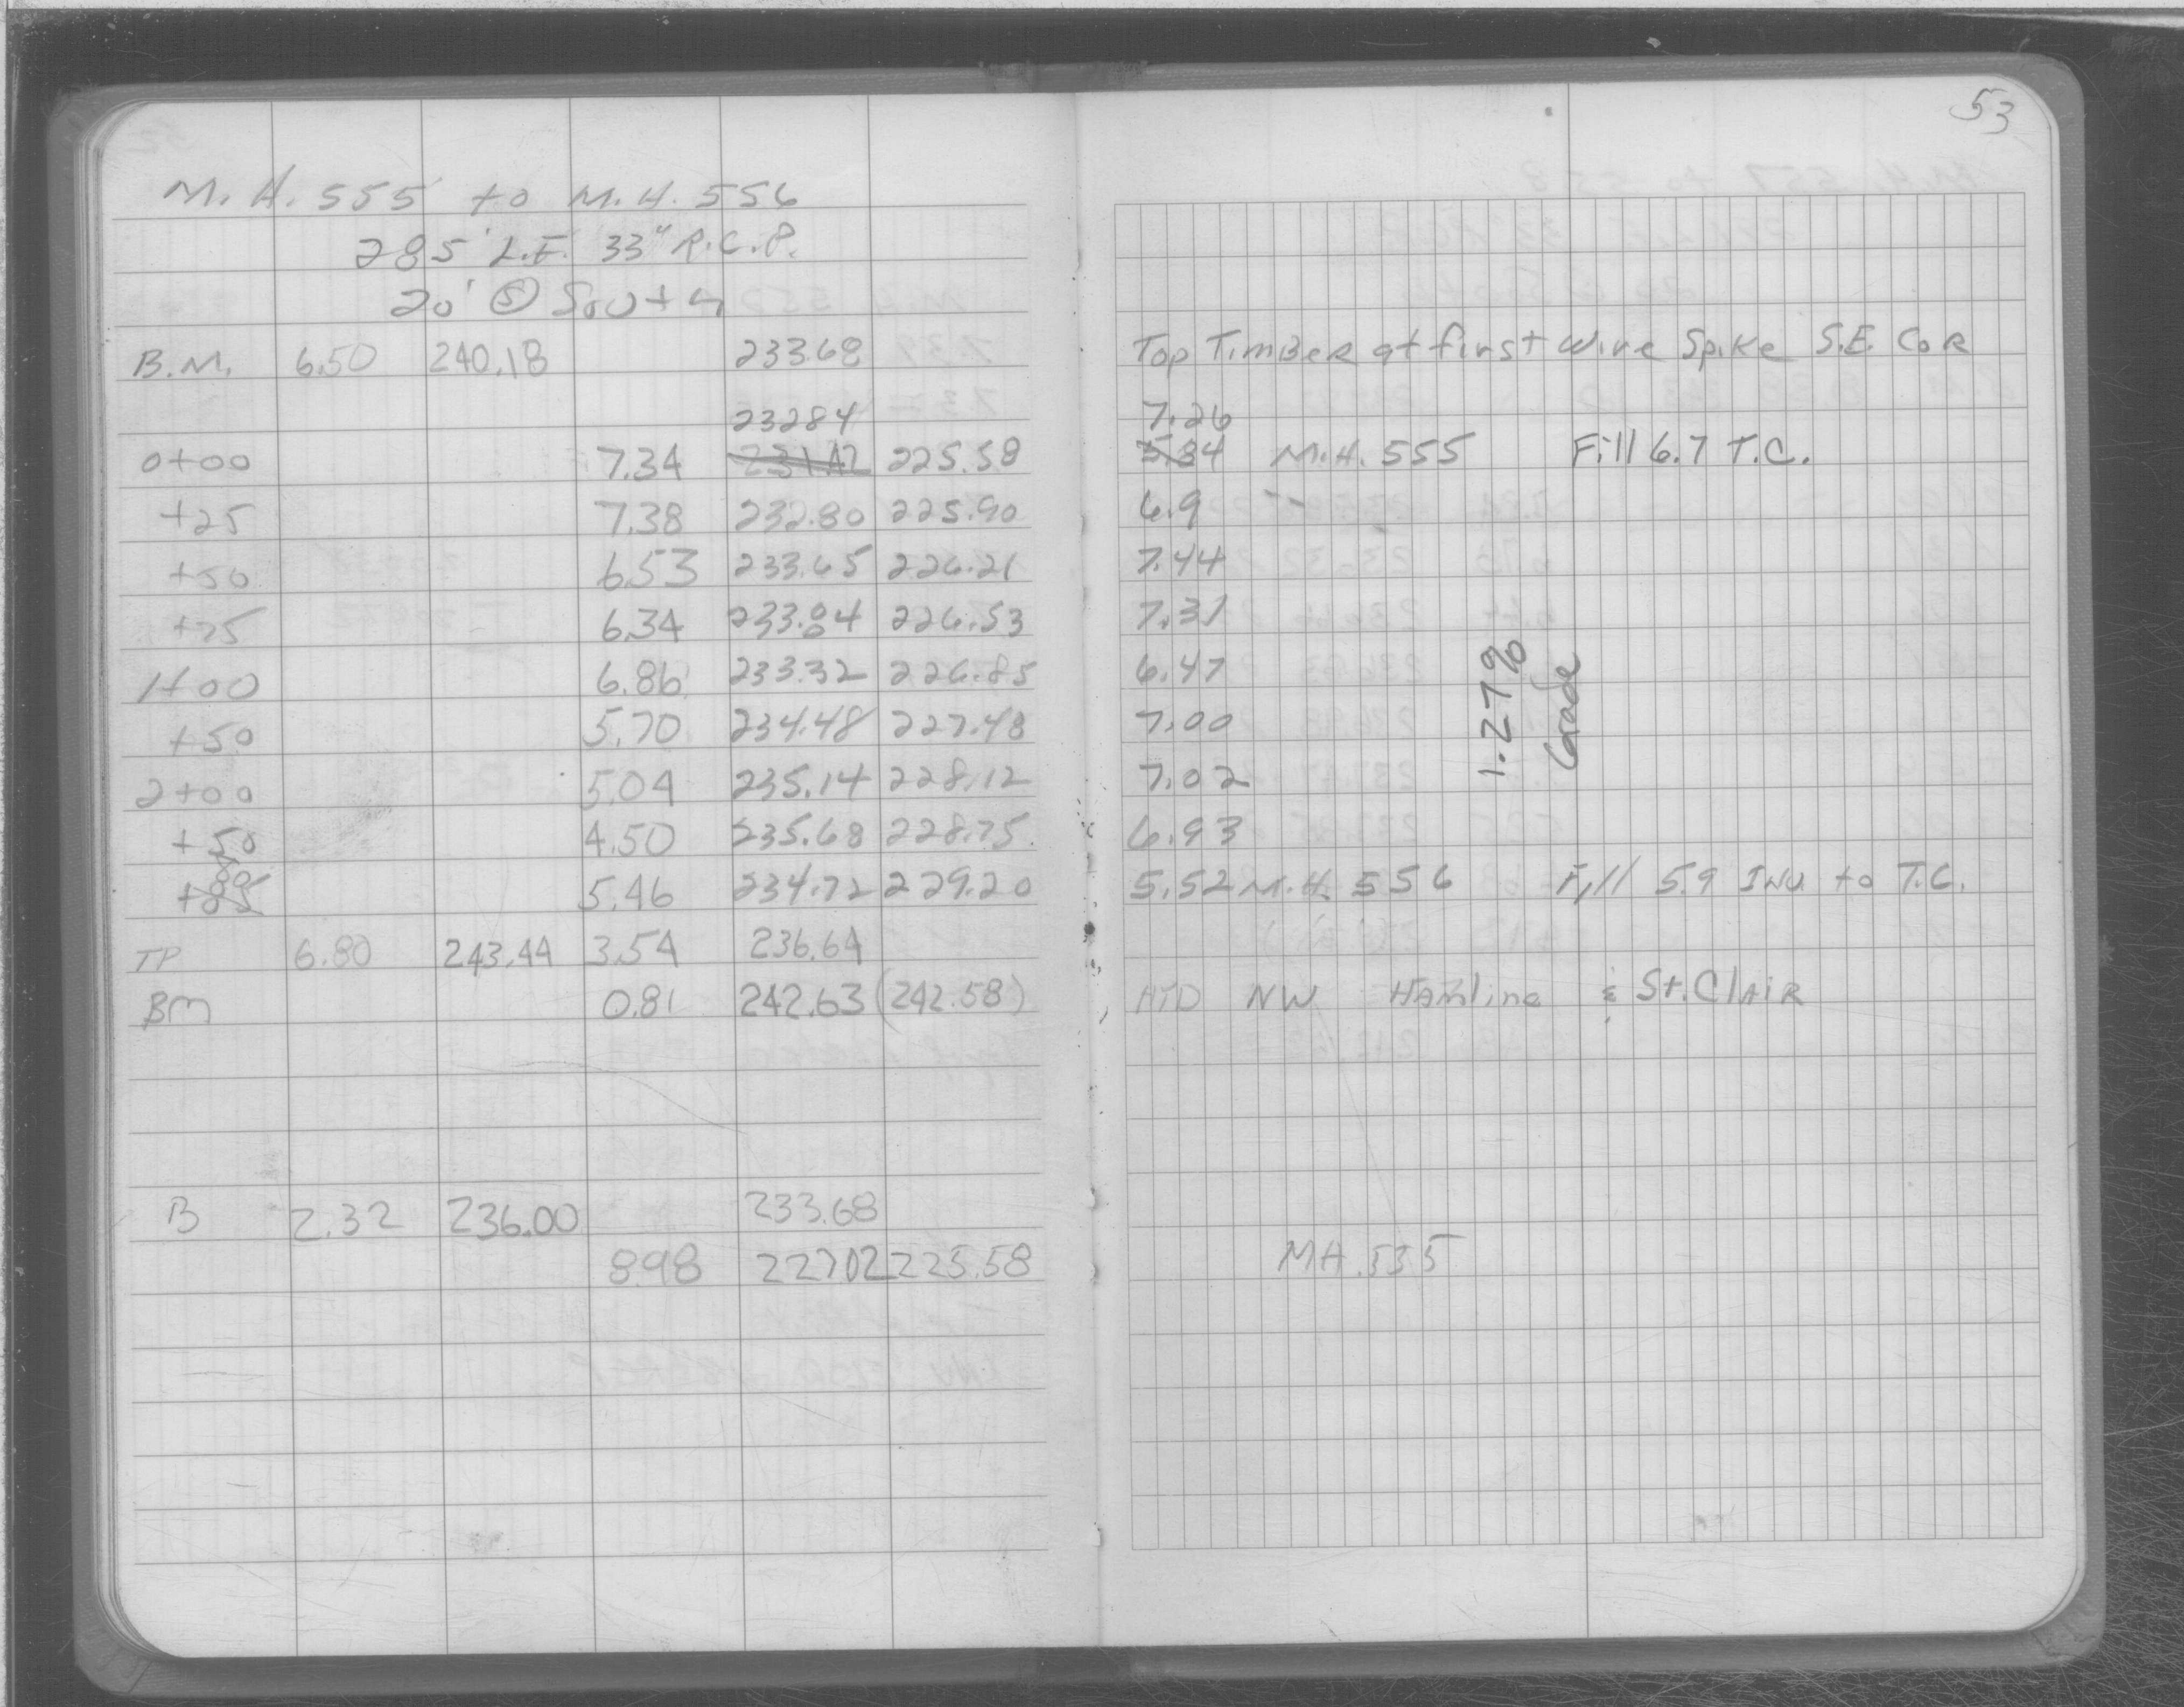 53
M.H. 555 to M.H. 556
285' L.F. 33" R.C.P.
20' Ⓢ South
B.M. 6.50 240.18 233.68 Top Timber at first Wire Spike S.E. Cor
232.84 7.26
0+00 7.34 231.42 225.58 5.84 M.H. 555 Fill 6.7 T.C.
+25 7.38 232.80 225.90 6.9
+50 6.53 233.65 226.21 7.44
+75 6.34 233.84 226.53 7.31
1+00 6.86 233.32 226.85 6.47
+50 5.70 234.48 227.48 7.00
2+00 5.04 235.14 228.12 7.02
+50 4.50 235.68 228.75 6.93
+85 5.46 234.72 229.20 5.52 M.H. 556 Fill 5.9 Inv. to T.C.
1.27%
Grade
TP 6.80 243.44 3.54 236.64
BM 0.81 242.63 (242.58) HYD NW Hamline & St. Clair
B 2.32 236.00 233.68
8.98 227.02 225.58 MH.535